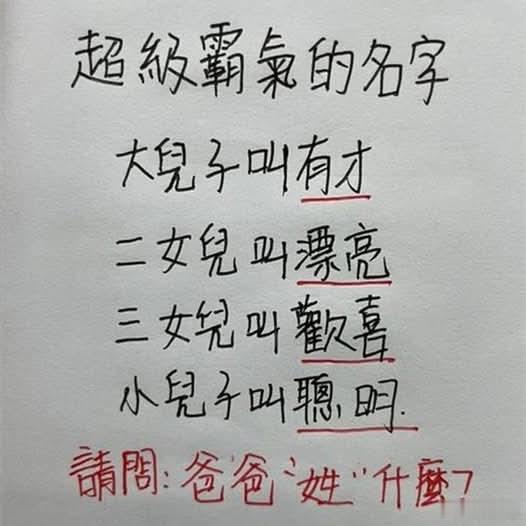 超級霸氣的名字
大兒子叫有才
二女兒叫漂亮
三女兒叫歡喜
小兒子叫聰明.
請問:爸爸"姓"什麼?